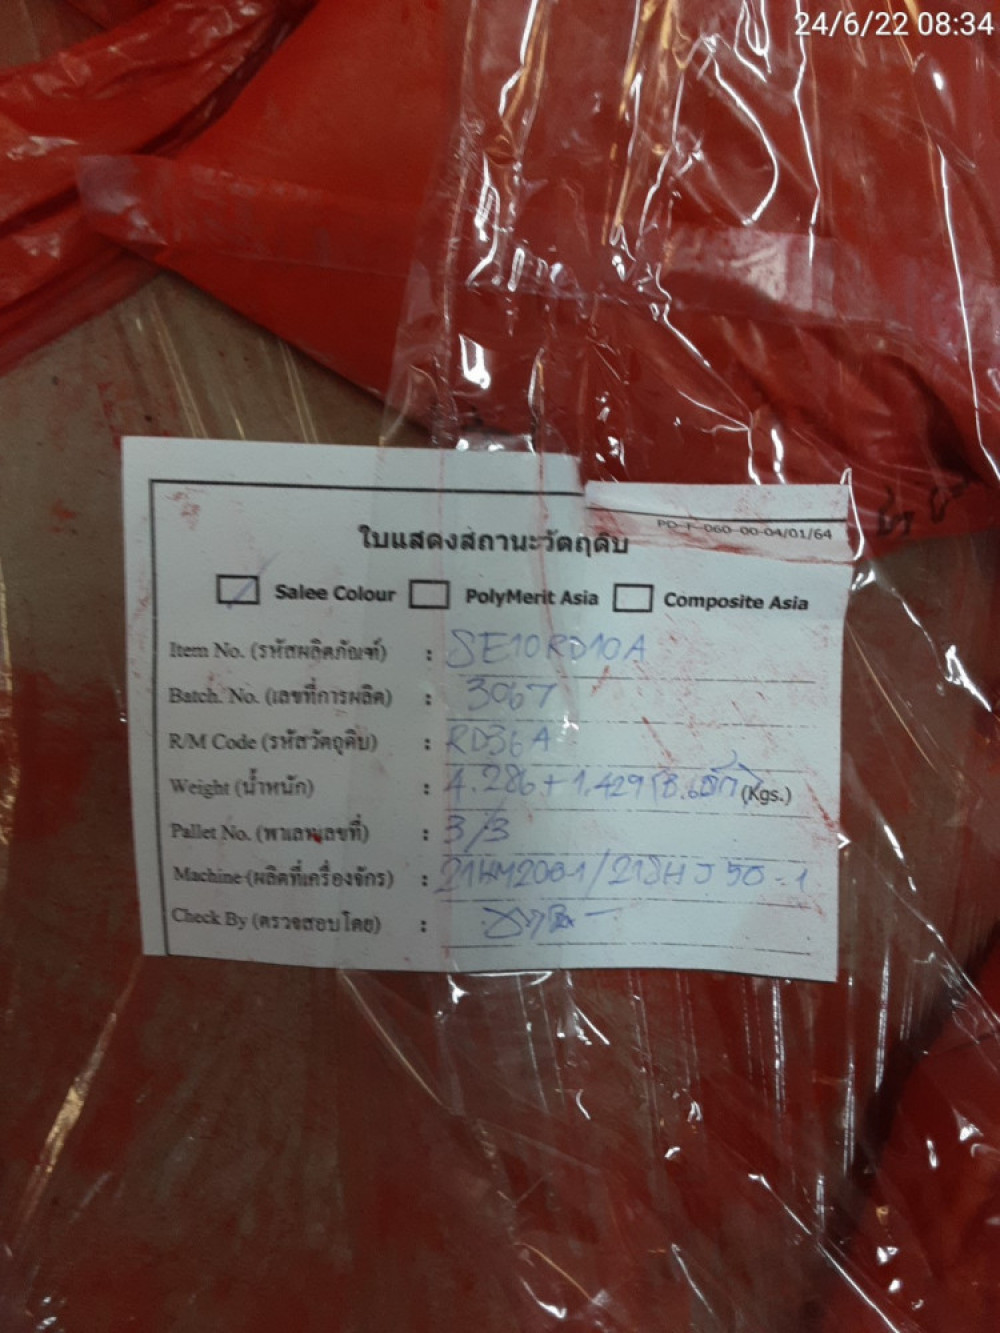 24/6/22 08:34
PD-F-060-00-04/01/64
ใบแสดงสถานะวัตถุดิบ
Salee Colour PolyMerit Asia Composite Asia
Item No. (รหัสผลิตภัณฑ์) : SE10RD10A
Batch. No. (เลขที่การผลิต) : 3067
R/M Code (รหัสวัตถุดิบ) : RD36A
Weight (น้ำหนัก) : 4.286 + 1.429 (Kgs.)
Pallet No. (พาเลทเลขที่) : 3/3
Machine (ผลิตที่เครื่องจักร) :
Check By (ตรวจสอบโดย) :